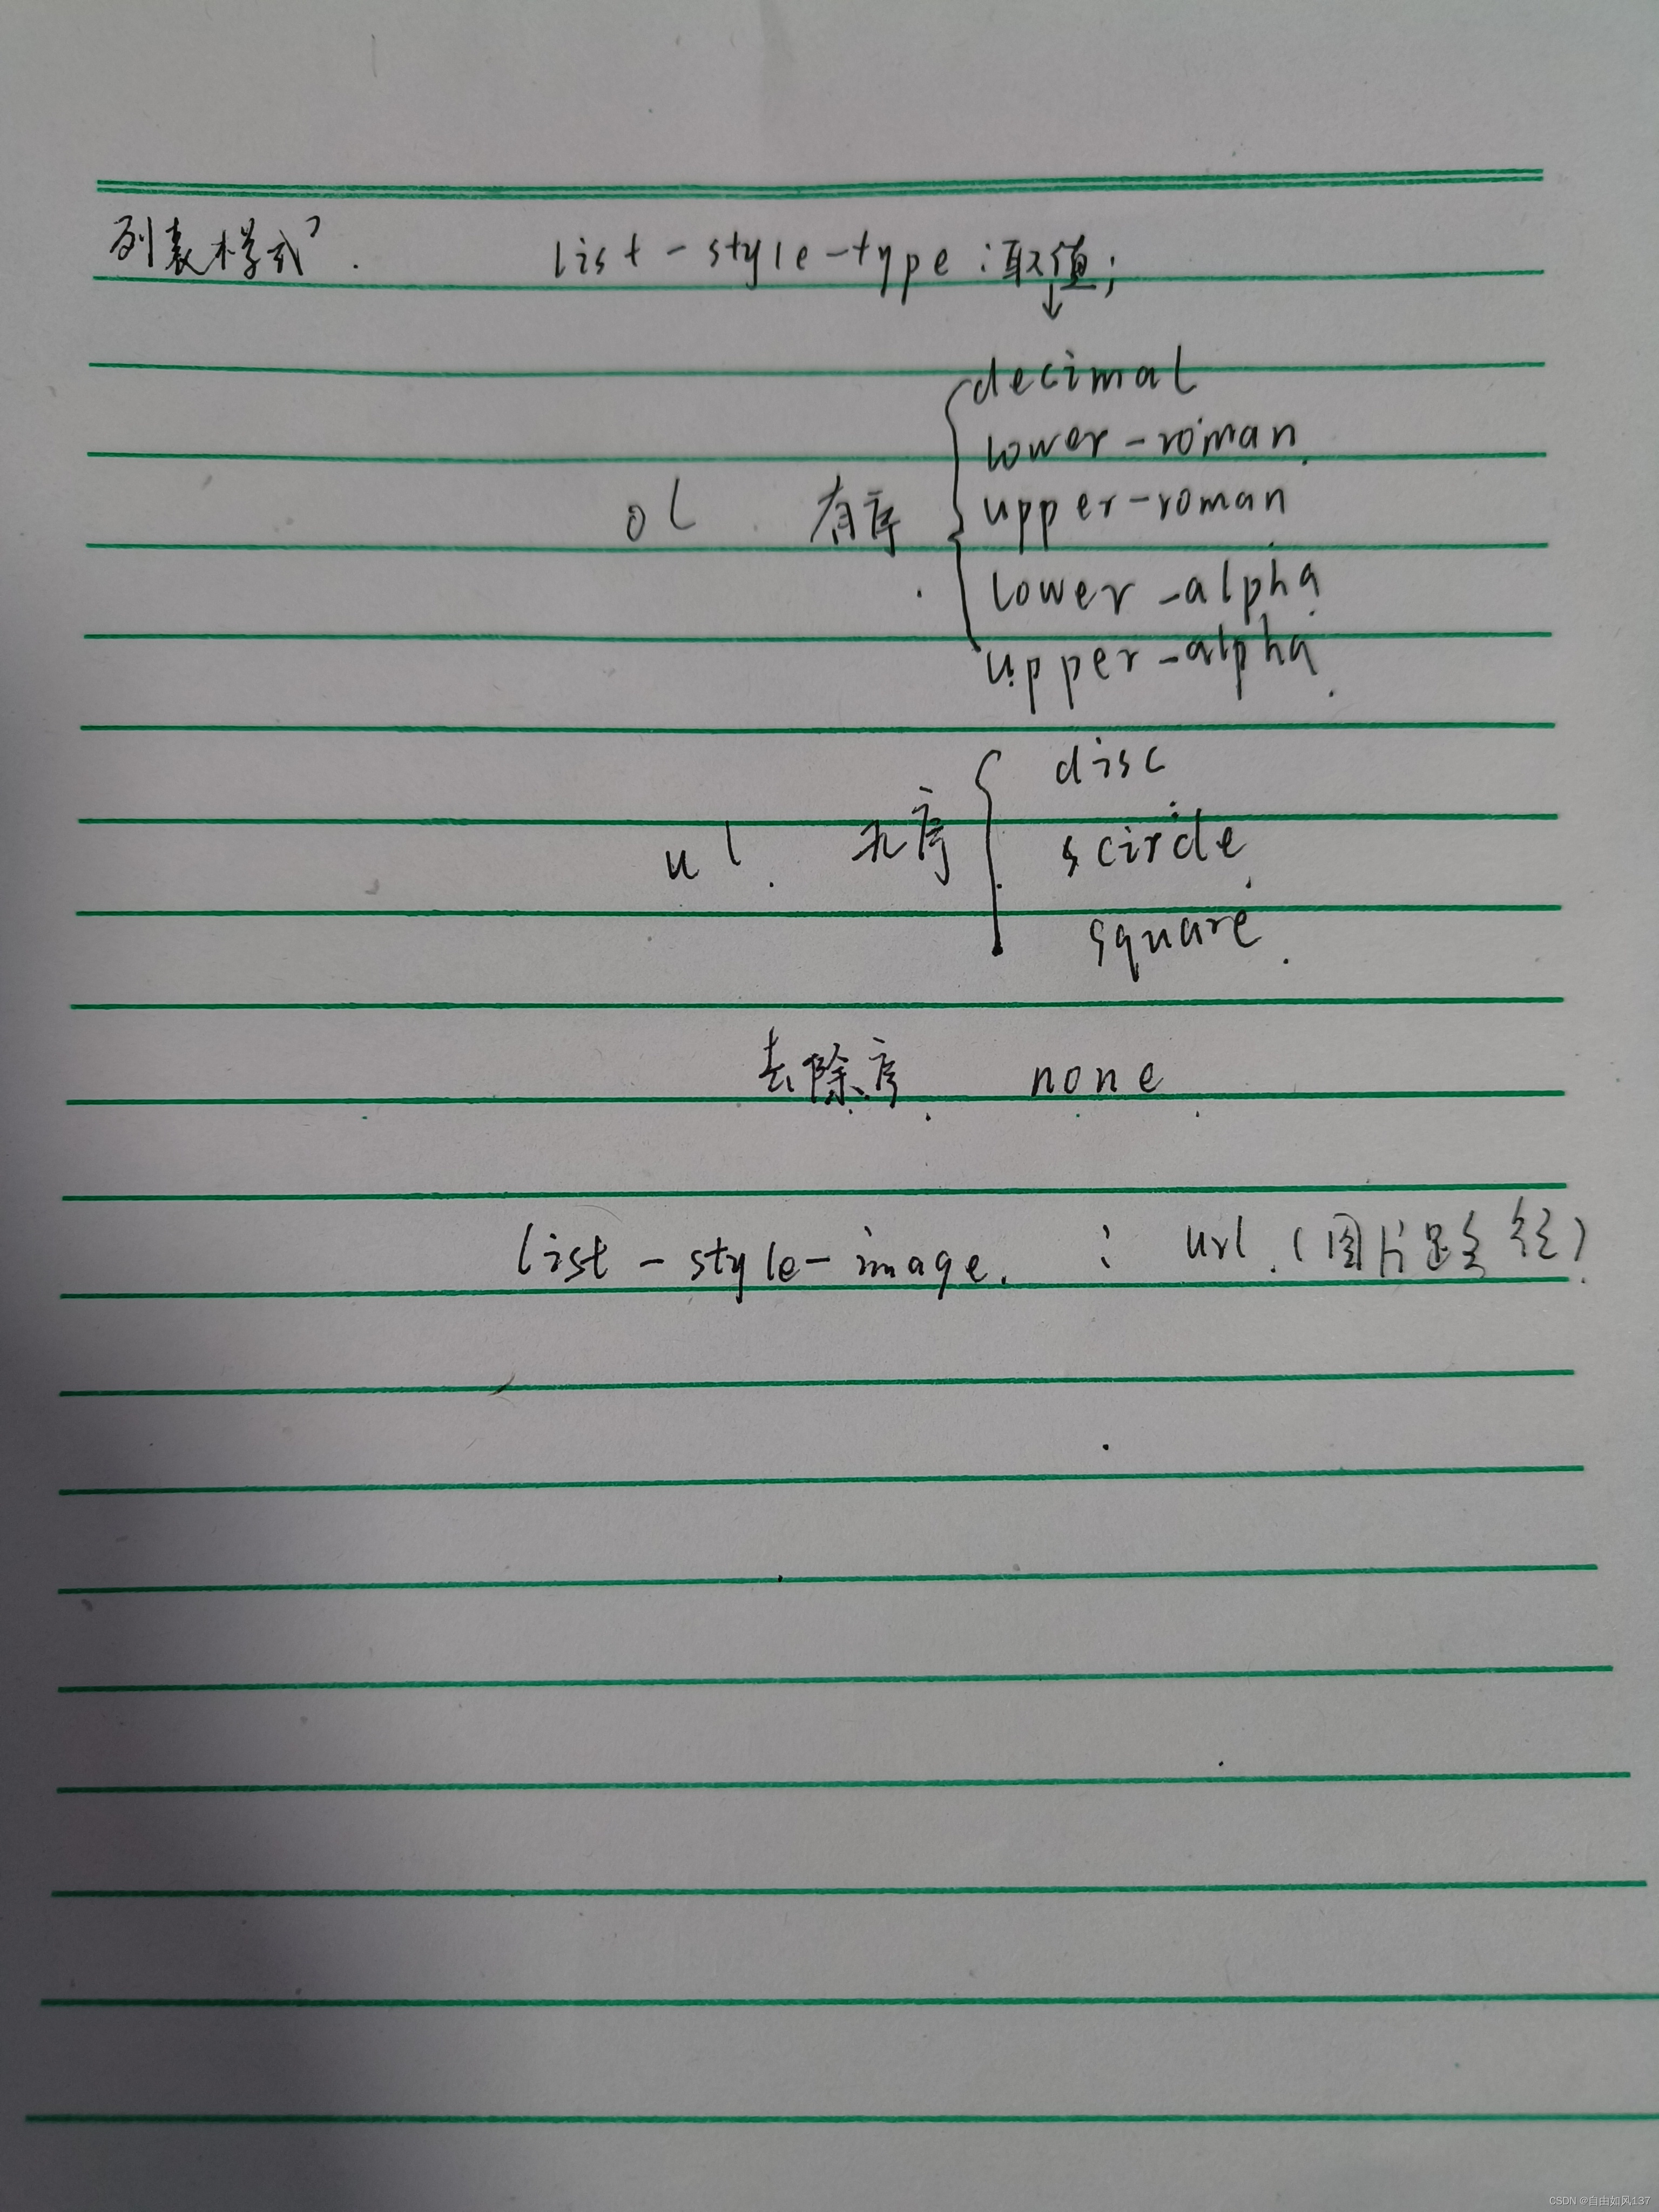 列表样式 . list-style-type :取值;
↓
decimal
lower-roman
ol 有序 upper-roman
lower-alpha
upper-alpha
disc
ul 无序 scircle
square
去除序 none
list-style-image : url (图片路径)
CSDN @自由如风137